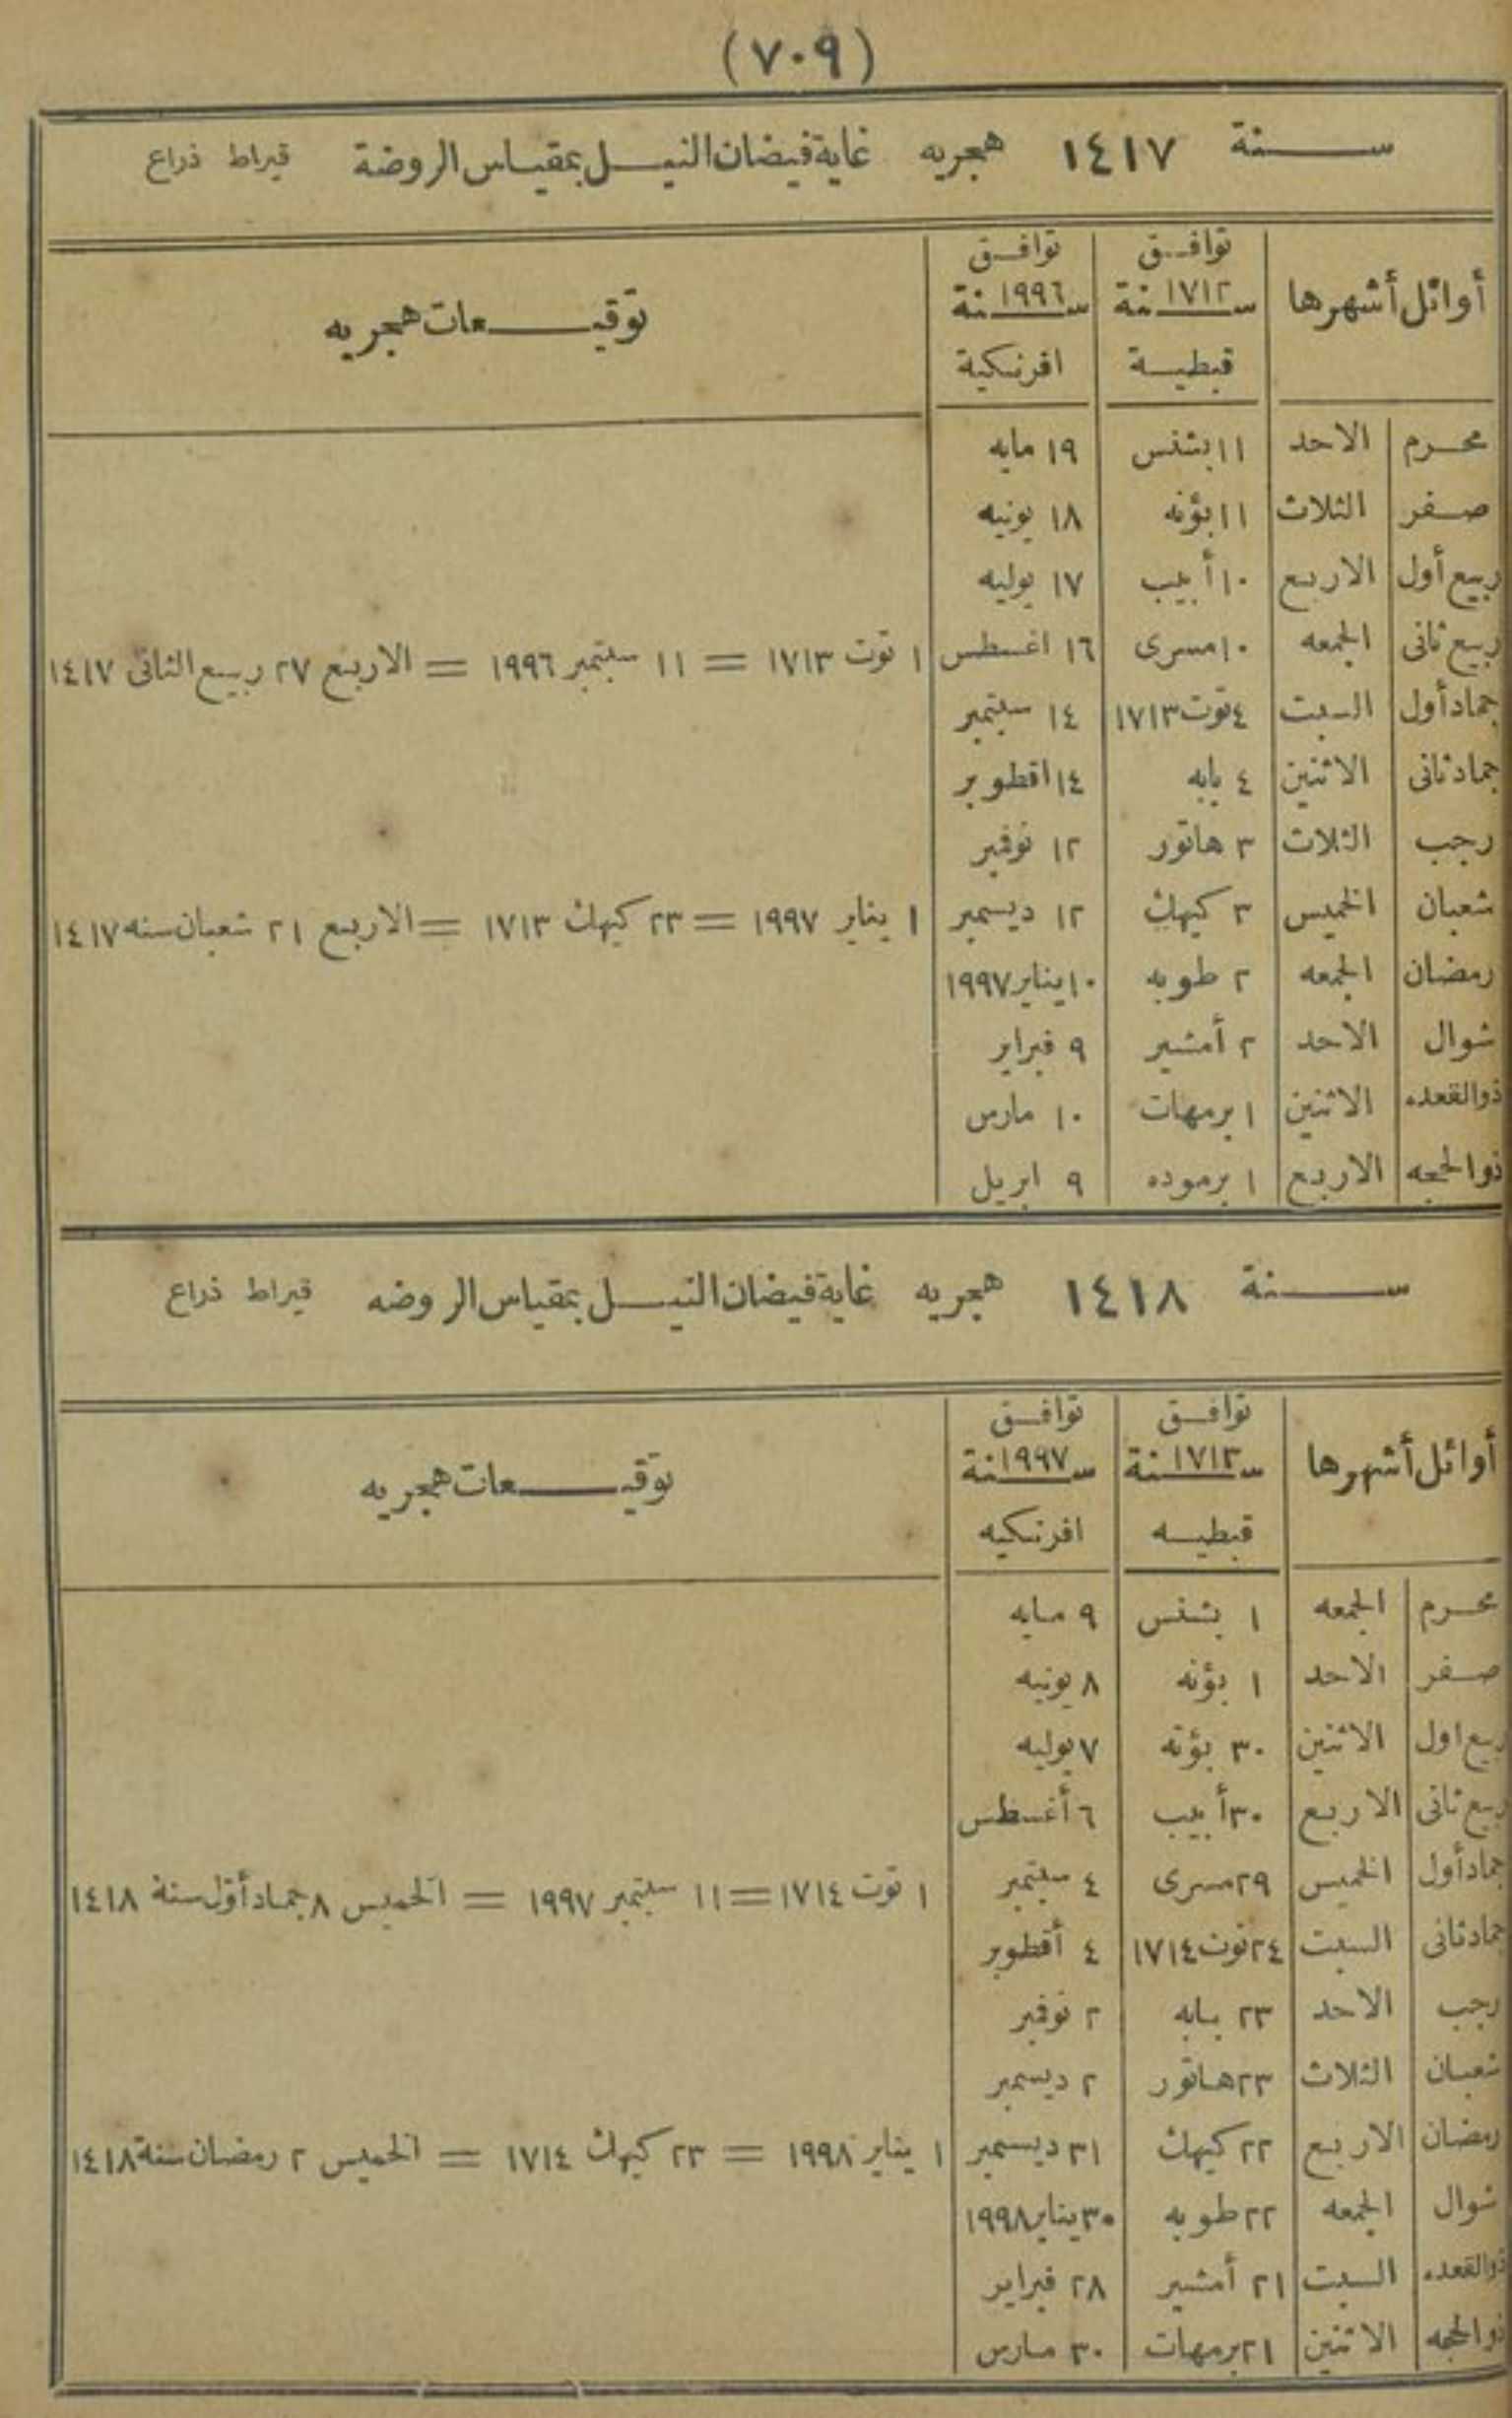 (٧٠٩)
سنة ١٤١٧ هجريه غاية فيضان النيل بمقياس الروضة قيراط ذراع
أوائل أشهرها توافق سنة ١٧١٢ قبطية توافق سنة ١٩٩٦ افرنكية توقيعات هجريه
محرم الاحد ١١ بشنس ١٩ مايه
صفر الثلاث ١١ بؤنه ١٨ يونيه
ربيع أول الاربع ١٠ أبيب ١٧ يوليه
ربيع ثانى الجمعه ١٠ مسرى ١٦ اغسطس ١ توت ١٧١٣ = ١١ سبتمبر ١٩٩٦ = الاربع ٢٧ ربيع الثانى ١٤١٧
جماد أول السبت ٤ توت ١٧١٣ ١٤ سبتمبر
جماد ثانى الاثنين ٤ بابه ١٤ اقطوبر
رجب الثلاث ٣ هاتور ١٢ نوفمبر
شعبان الخميس ٣ كيهك ١٢ ديسمبر ١ يناير ١٩٩٧ = ٢٣ كيهك ١٧١٣ = الاربع ٢١ شعبان سنه ١٤١٧
رمضان الجمعه ٢ طوبه ١٠ يناير ١٩٩٧
شوال الاحد ٢ أمشير ٩ فبراير
ذوالقعده الاثنين ١ برمهات ١٠ مارس
ذوالحجه الاربع ١ برموده ٩ ابريل
سنة ١٤١٨ هجريه غاية فيضان النيل بمقياس الروضه قيراط ذراع
أوائل أشهرها توافق سنة ١٧١٣ قبطيه توافق سنة ١٩٩٧ افرنكيه توقيعات هجريه
محرم الجمعه ١ بشنس ٩ مايه
صفر الاحد ١ بؤنه ٨ يونيه
ربيع اول الاثنين ٣٠ بؤنه ٧ يوليه
ربيع ثانى الاربع ٣٠ أبيب ٦ أغسطس
جماد أول الخميس ٢٩ مسرى ٤ سبتمبر ١ توت ١٧١٤ = ١١ سبتمبر ١٩٩٧ = الخميس ٨ جماد أول سنة ١٤١٨
جماد ثانى السبت ٢٤ توت ١٧١٤ ٤ أقطوبر
رجب الاحد ٢٣ بابه ٢ نوفمبر
شعبان الثلاث ٢٣ هاتور ٢ ديسمبر
رمضان الاربع ٢٢ كيهك ٣١ ديسمبر ١ يناير ١٩٩٨ = ٢٣ كيهك ١٧١٤ = الخميس ٢ رمضان سنة ١٤١٨
شوال الجمعه ٢٢ طوبه ٣٠ يناير ١٩٩٨
ذوالقعده السبت ٢١ أمشير ٢٨ فبراير
ذوالحجه الاثنين ٢١ برمهات ٣٠ مارس